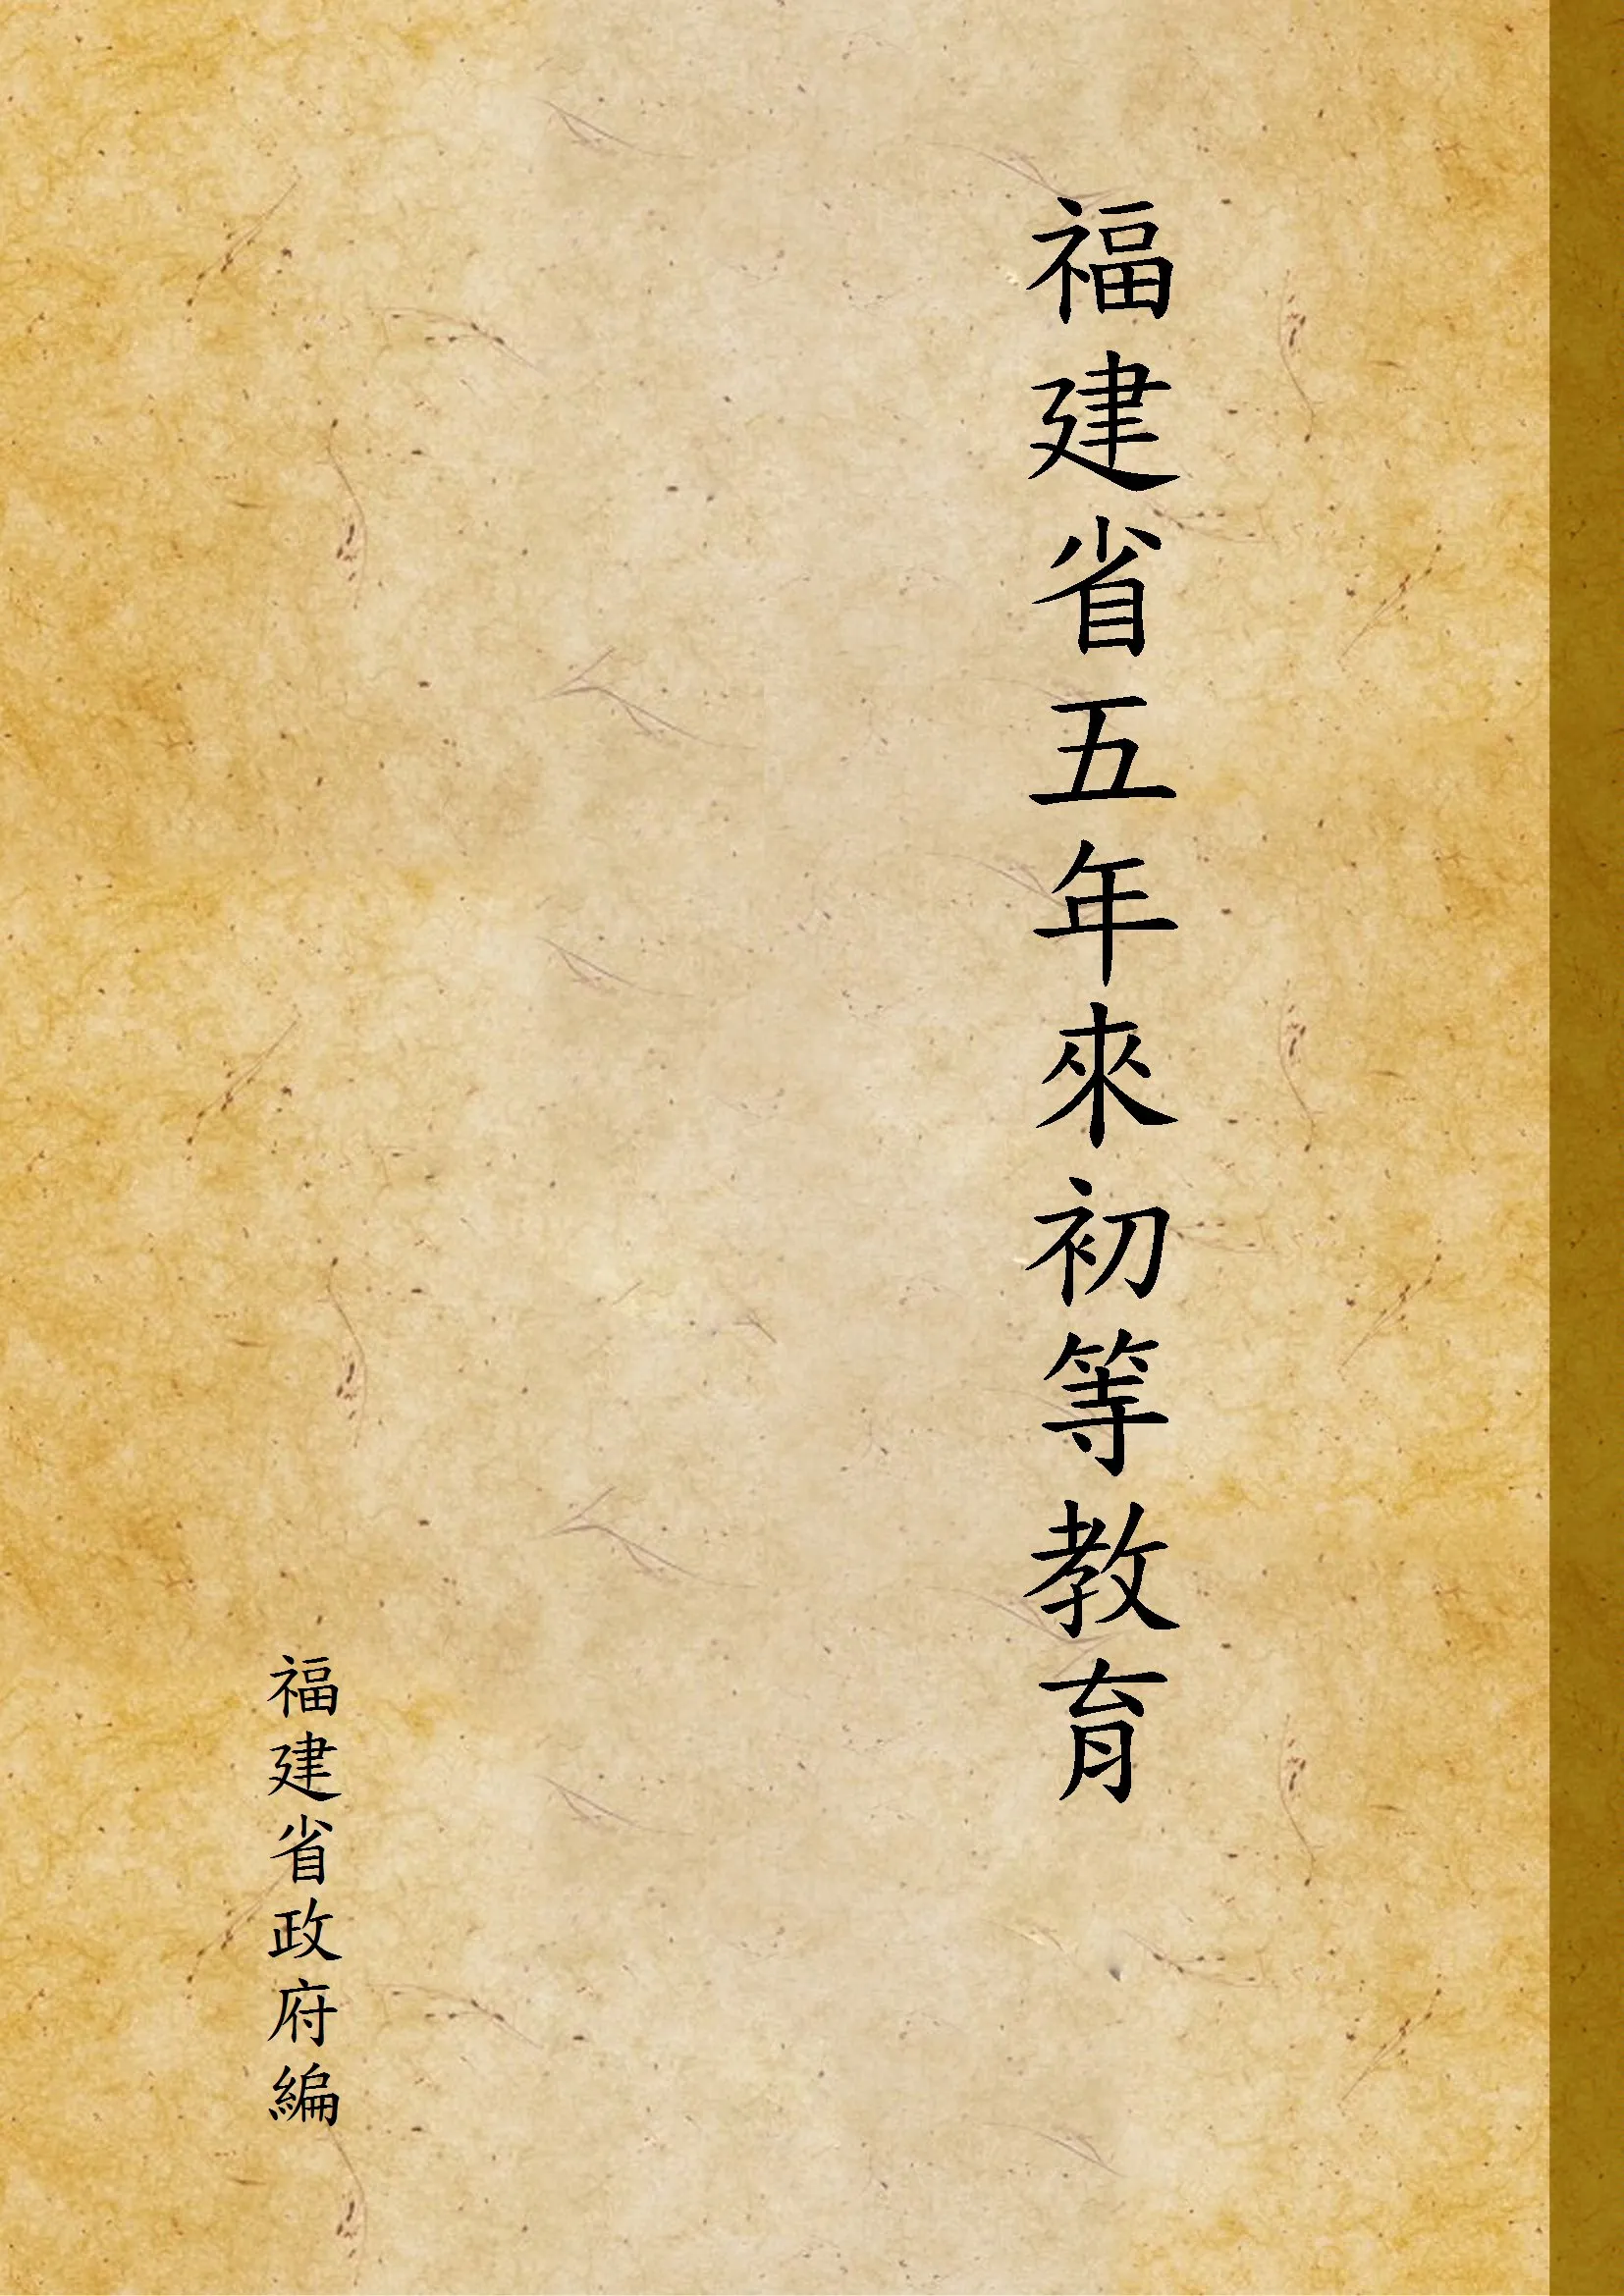 福建省五年來初等教育
福建省政府編